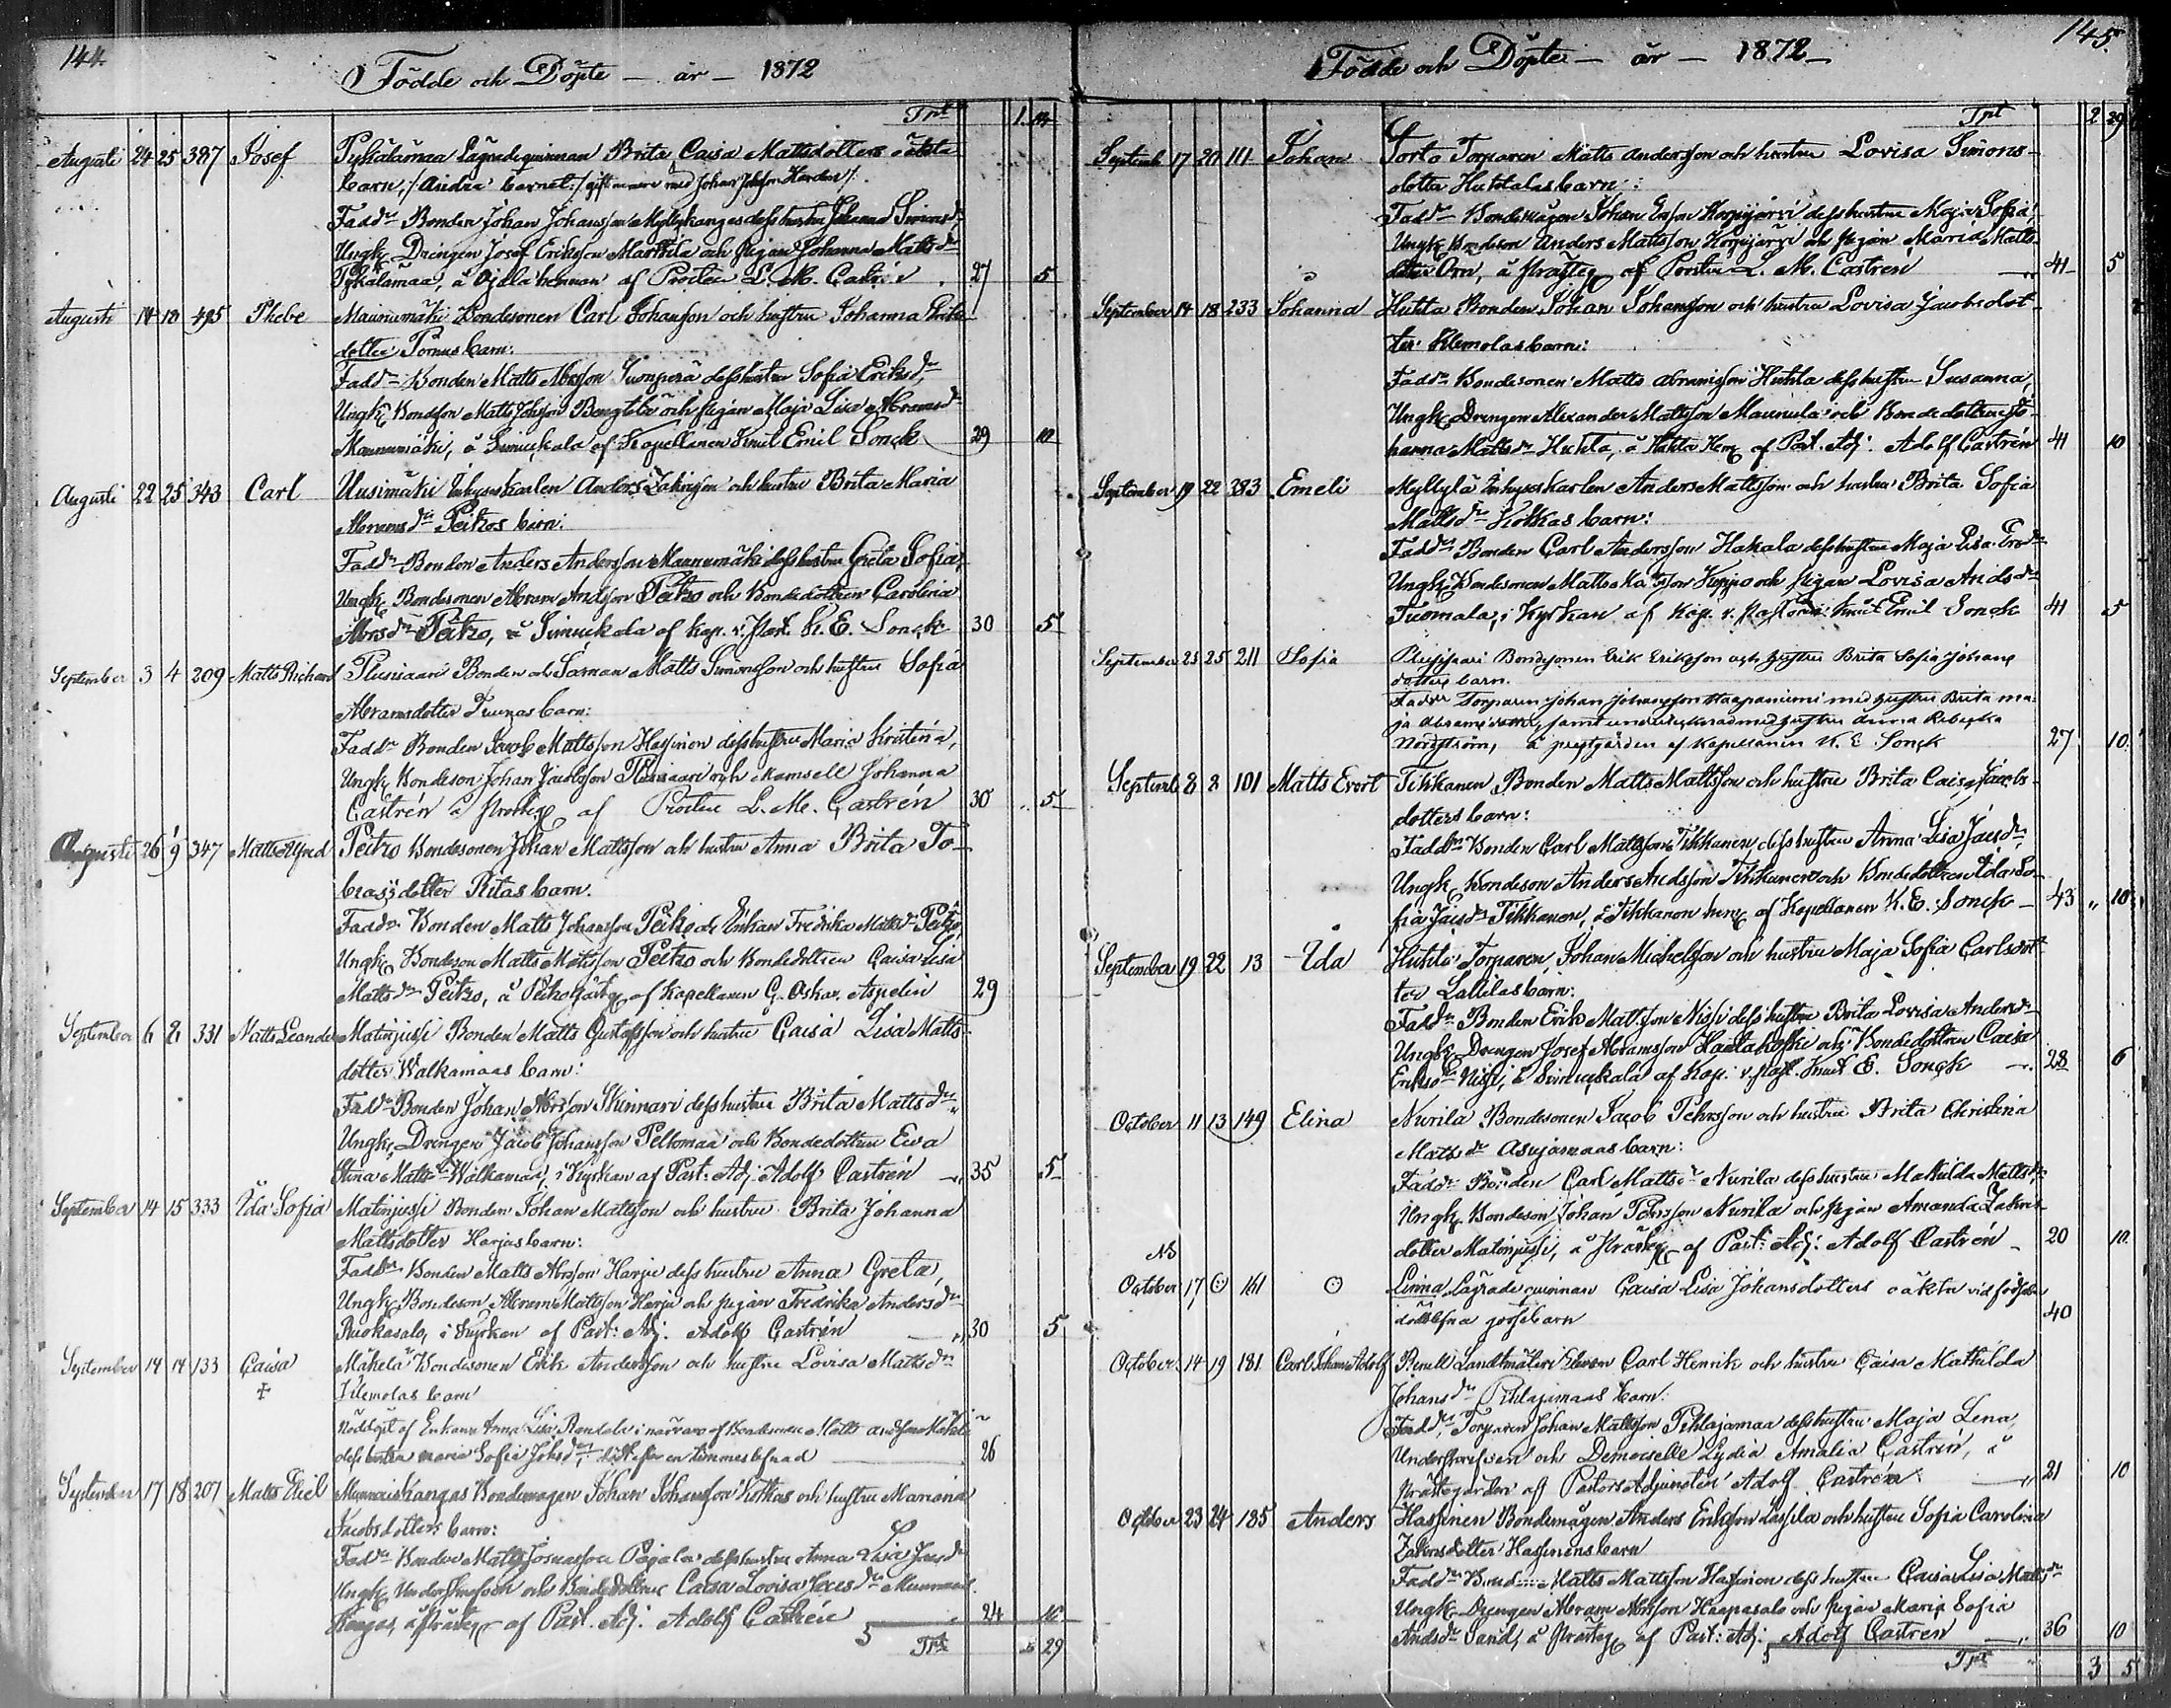 144.
Födde och Döpte — år — 1872
Trpt 1. 14
Augusti 24 25 387 Josef Pyhälämaa Lägrade qvinnan Brita Caisa Mattsdotters oäkta
barn, /: Andra barnet :/ gift med Johan
Fadd:r Bonden Johan Johansson Myllykangas dess hustru Johanna Simonsd:r
Ungk. Drengen Josef Eriksson Marttila och pigan Johanna Mattsd:r
Pyhälämaa, å Ojala hemman af Prosten L. M. Castrén 27 5
Augusti 14 18 495 Phebe Maunumäki Bondesonen Carl Johansson och hustru Johanna Eriks
dotter Törnus barn:
Fadd:r Bonden Matts Abrsson Luonperä dess hustru Sofia Eriksd:r
Ungk. Bondson Matts Johsson Bengtola och pigan Maja Lisa Abramsd:r
Maunumäki, å Simuskala af Kapellanen Knut Emil Sonck 29 10
Augusti 22 25 343 Carl Uusimäki Inhyseskarlen Anders Zakrisson och hustru Brita Maria
Abramsd:r Peitzos barn:
Fadd:r Bonden Anders Andersson Maunumäki dess hustru Greta Sofia,
Ungk. Bondesonen Abram Andsson Peitzo och Bondedottren Carolina
Abrsd:r Peitzo, å Simuskala af Kap. v. Past. K. E. Sonck 30 5
September 3 4 209 Matts Richard Plusiaari Bonden och Matts Simonsson och hustru Sofia
Abramsdotter barn:
Fadd:r Bonden Jacob Mattsson Hassinen dess hustru Maria Kristina,
Ungk. Bondeson Johan Jacobsson Plusiaari och Mamsell Johanna
Castrén å Prosteg. af Prosten L. M. Castrén 30 5
Augusti 26 9 347 Matts Alfred Peitzo Bondesonen Johan Mattsson och hustru Anna Brita To-
biasdotter Ritas barn.
Fadd:r Bonden Matts Johansson Peitzo och Enkan Fredrika Mattsd:r Peitzo,
Ungk. Bondeson Matts Mattsson Peitzo och Bondedottren Caisa Lisa
Mattsd:r Peitzo, å Peitzo af Kapellanen G. Oskar Aspelin 29
September 6 8 331 Matts Leander Matinjussi Bonden Matts Gustafsson och hustru Caisa Lisa Matts-
dotter Walkamaas barn:
Fadd:r Bonden Johan Abrsson Skinnari dess hustru Brita Mattsd:r
Ungk. Drengen Jacob Johansson Peltomaa och Bondedottren Eva
Stina Mattsd:r Walkamaa, i Kyrkan af Past: Adj. Adolf Castrén 35 5
September 14 15 333 Ida Sofia Matinjussi Bonden Johan Mattsson och hustru Brita Johanna
Mattsdotter Harjus barn:
Fadd:r Bonden Matts Abrsson Harju dess hustru Anna Greta,
Ungk. Bondeson Abram Mattsson Harju och pigan Fredrika Andersd:r
Ruokasalo, i Kyrkan af Past: Adj. Adolf Castrén 30 5
September 14 14 133 Caisa Mäkelä Bondesonen Erik Andersson och hustru Lovisa Mattsd:r
+ Klemolas barn
Nöddöpt af Enkan Anna Lisa i närvaro af Bondesonen Matts Andsson Mäkelä
dess hustru Maria Sofia Johsd:r, död efter en timmes lefnad 26
September 17 18 207 Matts Eliel Munnaiskangas Bondemågen Johan Johansson Kotkas och hustru Mariana
Jacobsdotters barn:
Fadd:r Bonden Matts Pajala dess hustru Anna Lisa Jacsd:r
Ungk. Underskrefven och Bondedottren Caisa Lovisa Jacsd:r Munnais
kangas, å Prosteg. af Past. Adj. Adolf Castrén 24 10
Trpt 29
145
Födde och Döpte — år — 1872 —
Trpt 2 29
Septemb 17 20 111 Johan Torparen Matts Andersson och hustru Lovisa Simons-
dotter Huhtalas barn:
Fadd:r Bondemågen Johan Ersson Korpijärvi dess hustru Maja Sofia,
Ungk. Bondeson Anders Mattsson Korpijärvi och pigan Maria Matts-
dotter Orn, å Prosteg. af Prosten L. M. Castrén 41 5
September 14 18 233 Johanna Huhta Bonden Johan Johansson och hustru Lovisa Jacobsdot-
ter Klemolas barn:
Fadd:r Bondesonen Matts Abramsson Huhta dess hustru Susanna,
Ungk. Drengen Alexander Mattsson Maunula och Bondedottren Jo-
hanna Mattsd:r Huhta, å Huhta Hem. af Past. Adj. Adolf Castrén 41 10
September 19 22 383 Emeli Myllylä Inhyseskarlen Anders Mattsson och hustru Brita Sofia
Mattsd:r Kokkas barn:
Fadd:r Bonden Carl Andersson Hakala dess hustru Maja Lisa Ersd:r
Ungk. Bondesonen Matts Keppo och pigan Lovisa Andsd:r
Tuomala, i Kyrkan af Kap. v. Pastorn Knut Emil Sonck 41 5
September 23 25 211 Sofia Plusisaari Bondesonen Erik Eriksson och hustru Brita Sofia Johans
dotters barn.
Fadd:r Torparen Johan Johansson Haapaniemi med hustru Brita Ma-
ja Abramsdotter, samt undertecknad med hustru Anna Rebecka
Nordström, å prestgården af Kapellanen K. E. Sonck 27 10
Septemb 8 8 101 Matts Evert Tihkanen Bonden Matts Mattsson och hustru Brita Caisa Jacobs-
dotters barn:
Fadd:r Bonden Carl Mattsson Tihkanen, dess hustru Anna Lisa Jacsd:r
Ungk. Bondeson Anders Andsson Tihkanen och Bondedottren Ida So-
fia Jacsd:r Tihkanen, å Tihkanen hem. af Kapellanen K. E. Sonck — 43 " 10
September 19 22 13 Ida Huhta Torparen Johan Michelsson och hustru Maja Sofia Carlsdot-
ter Lallilas barn:
Fadd:r Bonden Erik Mattsson Nissi dess hustru Brita Lovisa Andersd:r
Ungk. Drengen Josef Abramsson Hautakoski och Bondedottren Caisa
Eriksd:r Nissi, å Simuskala af Kap. v. Past. Knut E. Sonck 28 6
October 11 13 149 Elina Nurila Bondesonen Jacob Pehrsson och hustru Brita Christina
Mattsd:r Asujamaas barn:
Fadd:r Bonden Carl Mattss:n Nurila dess hustru Mathilda Mattsd:r
Ungk. Bondeson Johan Persson Nurila och pigan Amanda Zakris-
dotter Matinjussi, å Prosteg. af Past: Adj. Adolf Castrén 20 10
NB
October 17 ⊙ 161 ⊙ Linna Lägrade quinnan Caisa Lisa Johansdotters oäkta vid födseln
dödblefna gossebarn 40
October 14 19 181 Carl Johan Adolf Renell Landtmäteri Eleven Carl Henrik och hustru Caisa Mathilda
Johansd:r Pihlajamaas barn.
Fadd:r Torparen Johan Mattsson Pihlajamaa dess hustru Maja Lena,
Underskrefven och Demoiselle Lydia Amalia Castrén, å
Prostegården af Pastors Adjunkten Adolf Castrén 21 10
October 23 24 185 Anders Hassinen Bondemågen Anders Eriksson Lassila och hustru Sofia Carolina
Zakrisdotter Hassinens barn
Fadd:r Bonden Matts Mattsson Hassinen dess hustru Caisa Lisa Mattsd:r
Ungk. Drengen Abram Abrsson Haapasalo och pigan Maria Sofia
Andsd:r Sand, å Prosteg. af Past: Adj. Adolf Castrén 36 10
Trpt 3 5